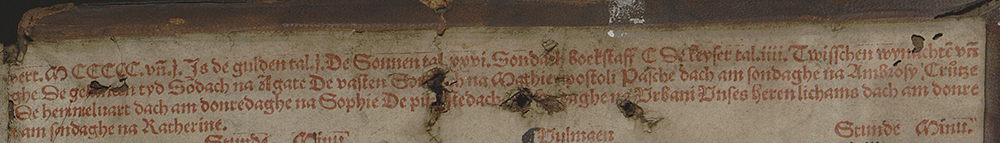 pert. M CCCCC. vñ. J. Js de gulden tal. J. De Sonnen tal. xxvi. Sondach boekstaff C De keyser tal. iiii. Twisschen wynachtē vñ
ghe. De tyd Sōdach na De vasten Sondach na Mathie apostoli Pasche dach am sondaghe na Ambrosy. Crütze
De hemmeluart dach am donredaghe na Sophie De dach am na Vrbani Vnses heren lichams dach am donre
am sondaghe na Ratherine.
Stunde Minu. Vulmaen Stunde Minu.